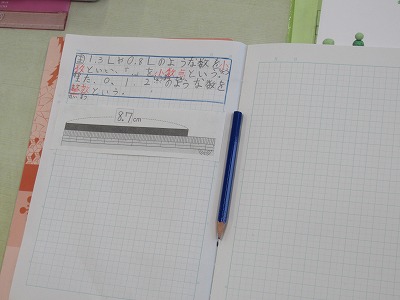 ま 1.3Lや0.8Lのような数を小
数といい、「.」を小数点という。
また、0、1、2のような数を
整数という。
せいすう
8.7cm